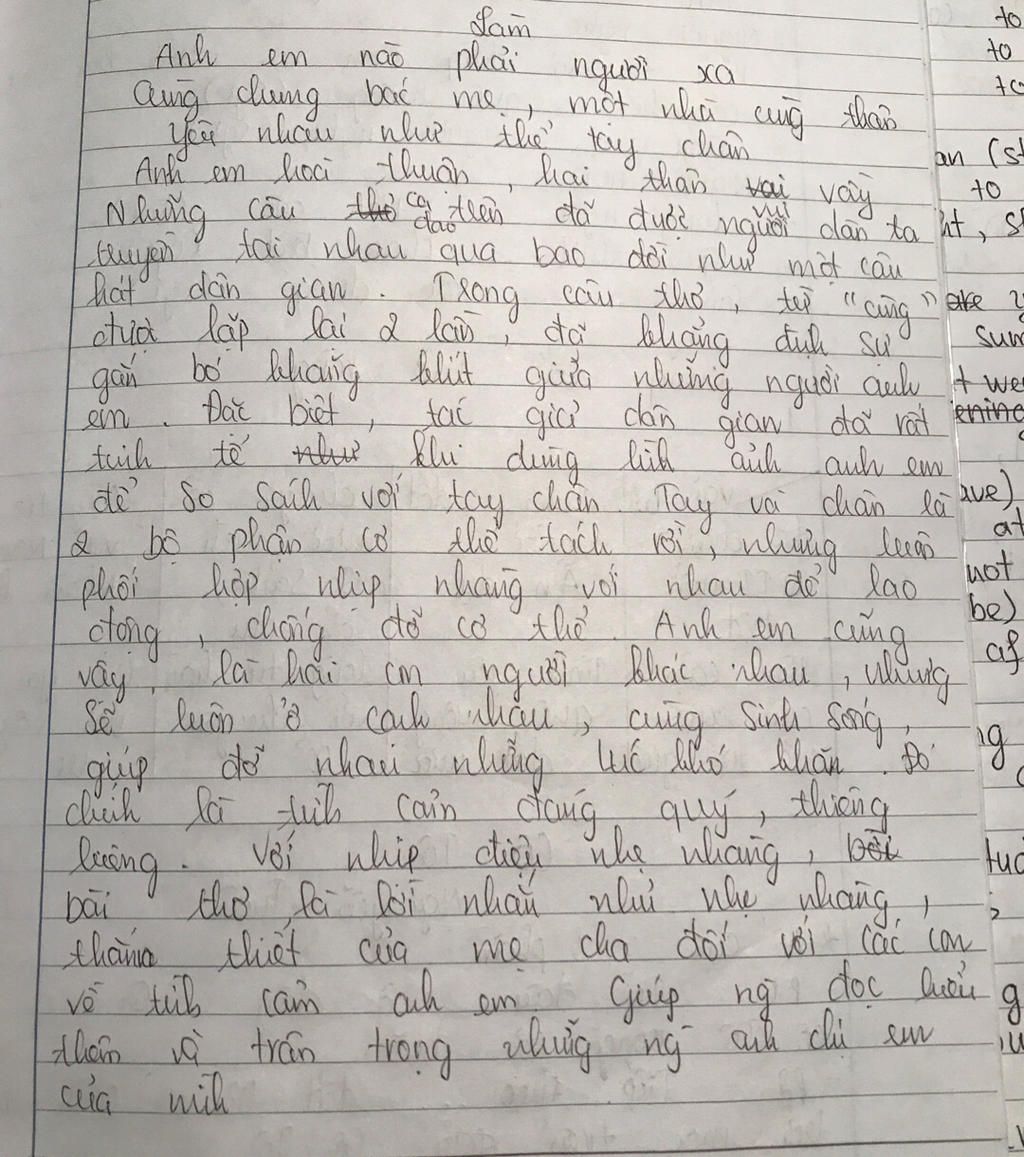 Làm
Anh em nào phải người xa
Cùng chung bác mẹ, một nhà cùng thân
Yêu nhau như thể tay chân
Anh em hoà thuận, hai thân vui vầy
Những câu ca dao trên đã được người dân ta
truyền tai nhau qua bao đời như một câu
hát dân gian. Trong câu thơ, từ "cùng"
được lặp lại 2 lần, đã khẳng định sự
gắn bó khăng khít giữa những người anh
em. Đặc biệt, tác giả dân gian đã rất
tinh tế khi dùng hình ảnh anh em
để so sánh với tay chân. Tay và chân là
2 bộ phận cơ thể tách rời, nhưng luôn
phối hợp nhịp nhàng với nhau để lao
động, chống đỡ cơ thể. Anh em cũng
vậy, là hai con người khác nhau, nhưng
sẽ luôn ở cạnh nhau, cùng sinh sống,
giúp đỡ nhau những lúc khó khăn. Đó
chính là tình cảm đáng quý, thiêng
liêng. Với nhịp điệu nhẹ nhàng,
bài thơ là lời nhắn nhủ nhẹ nhàng,
thiết của mẹ cha đối với các con
về tình cảm anh em. Giúp ng đọc hiểu
thêm và trân trọng những ng anh chị em
của mình
to
to
to
an (st
to
ht, s
sum
t we
ave)
at
not
be)
af
ng
g